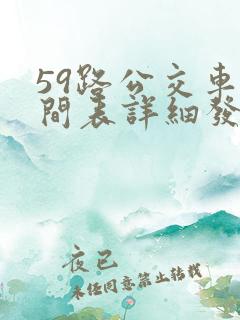 59路公交車
間表詳細發
夜已
未经同意禁止转载